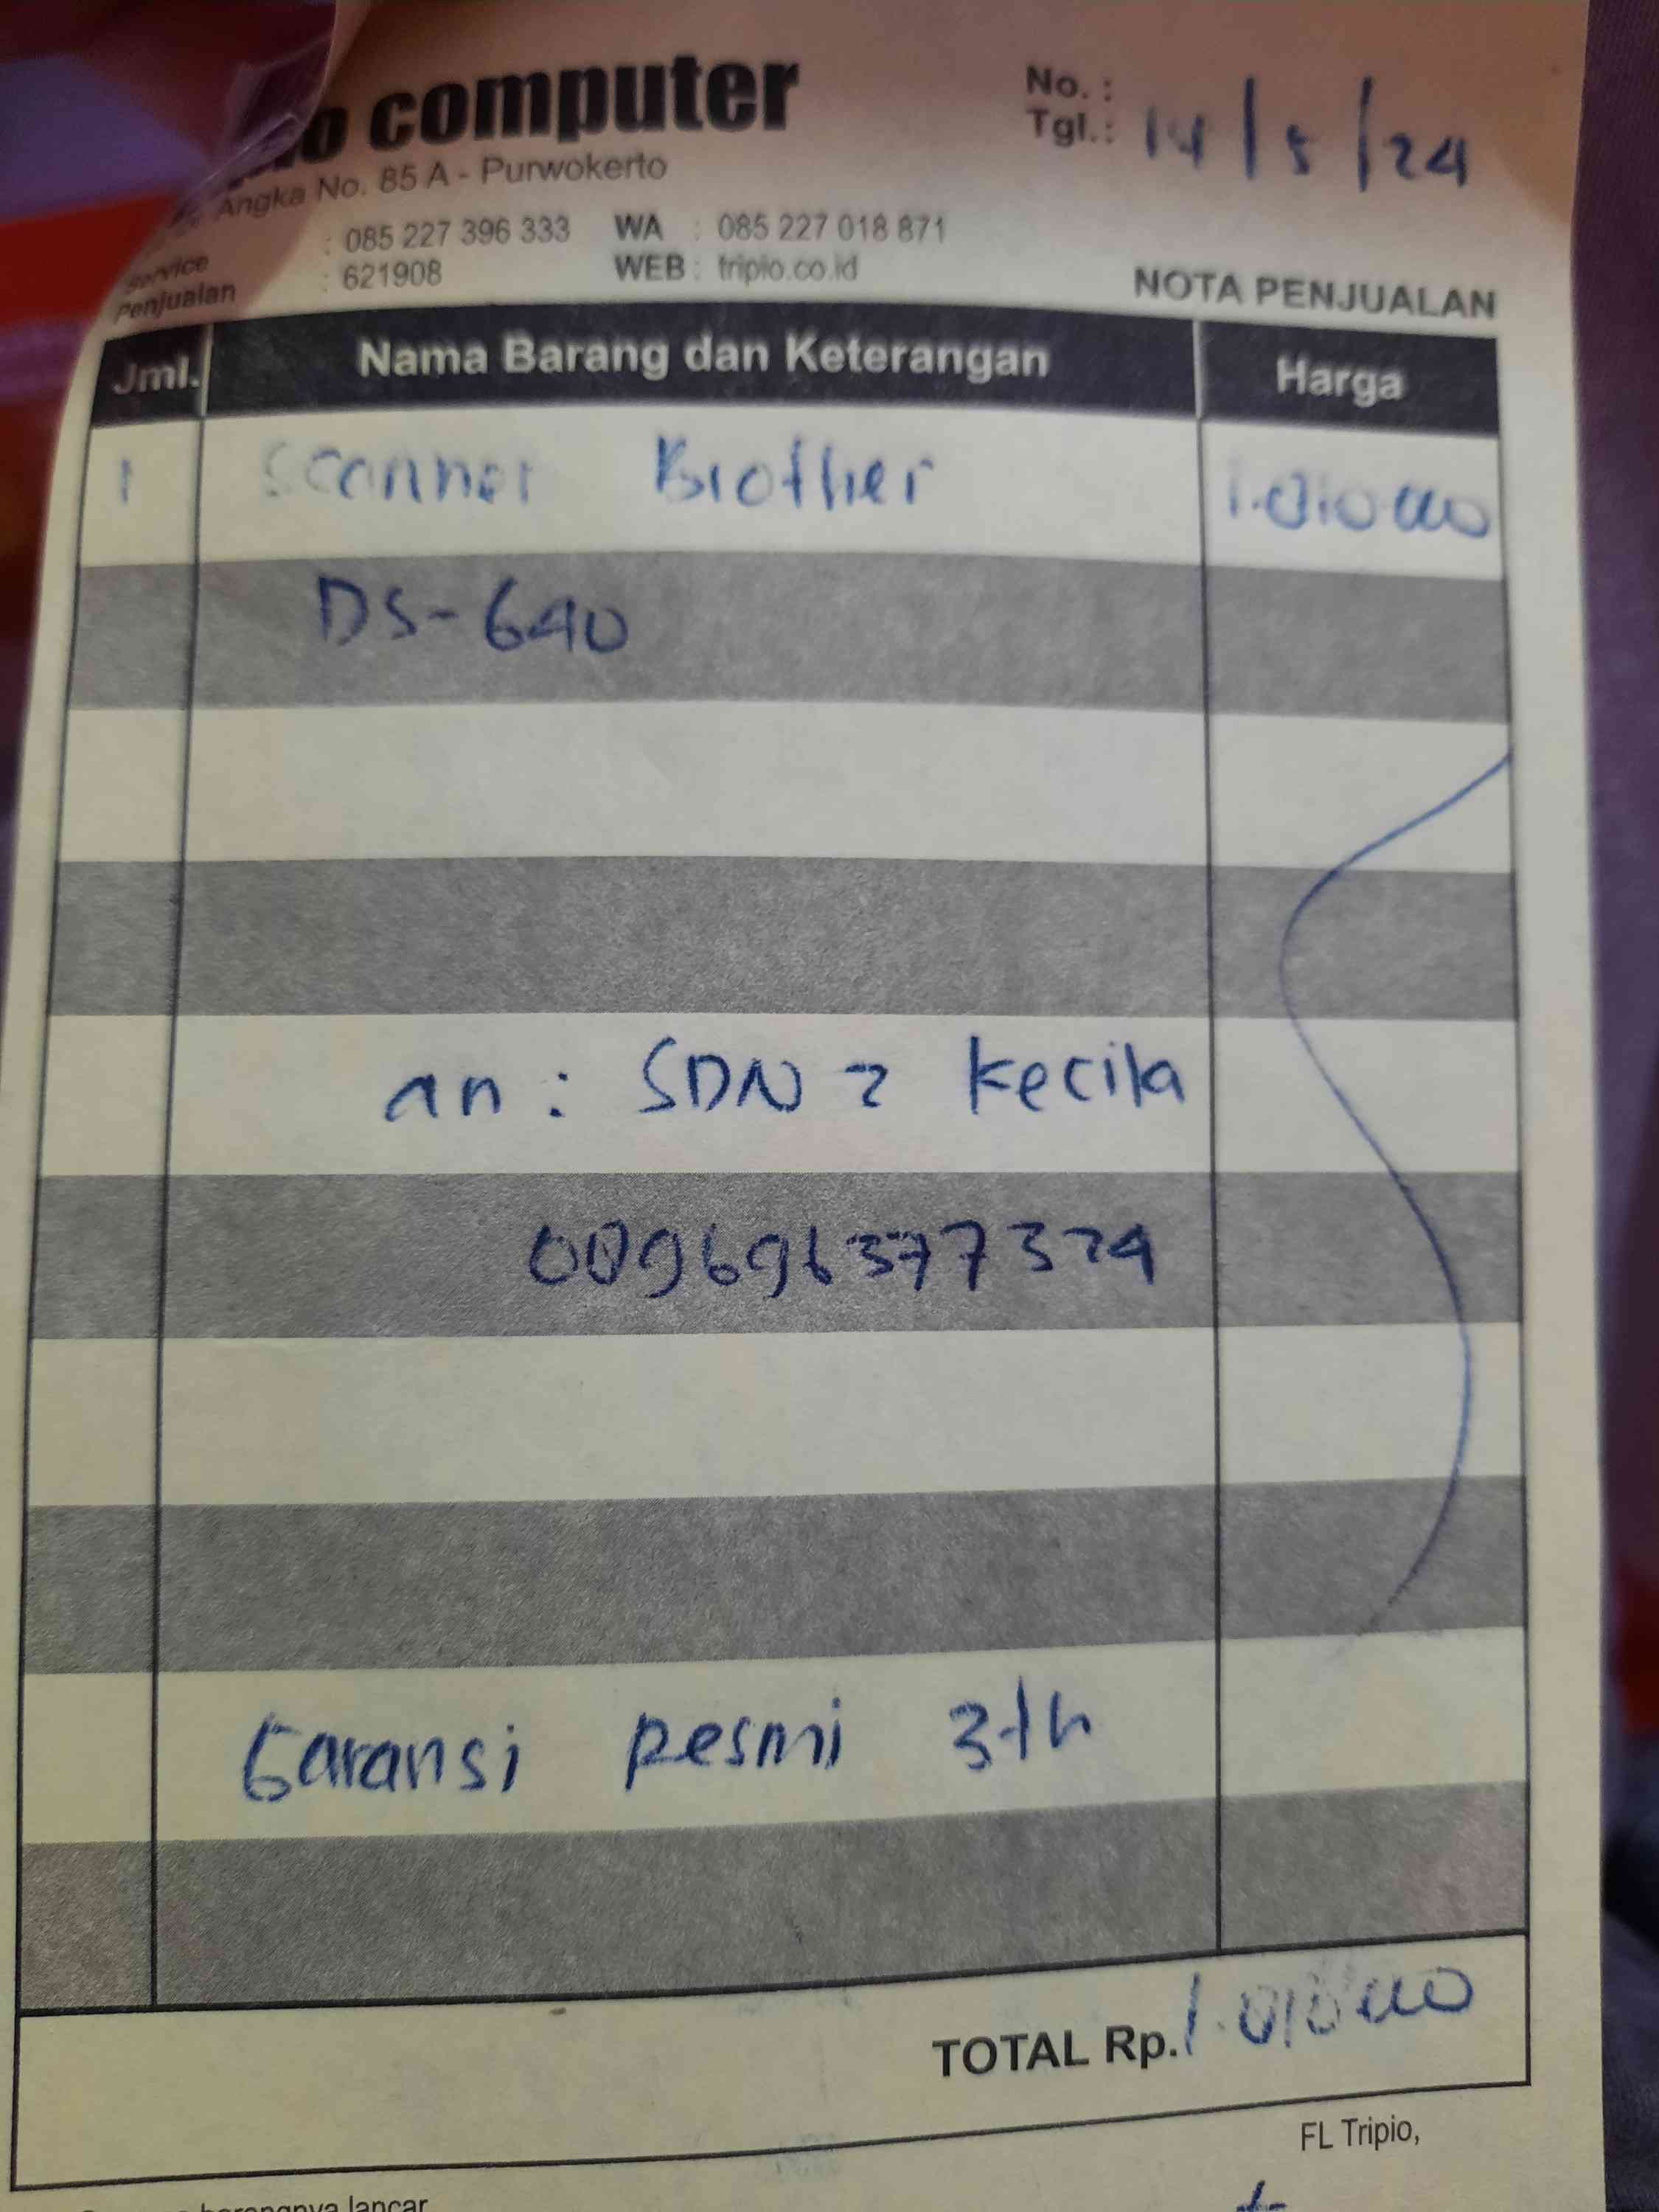 computer
No. :
Tgl.: 14/5/24
Angka No. 85 A - Purwokerto
Service : 085 227 396 333 WA : 085 227 018 871
Penjualan : 621908 WEB : tripio.co.id
NOTA PENJUALAN
Jml. Nama Barang dan Keterangan Harga
1 Scanner Brother 1.010.000
DS-640
an : SDN 2 Kecila
Garansi Resmi 3 th
TOTAL Rp. 1.010.000
FL Tripio,
lancar